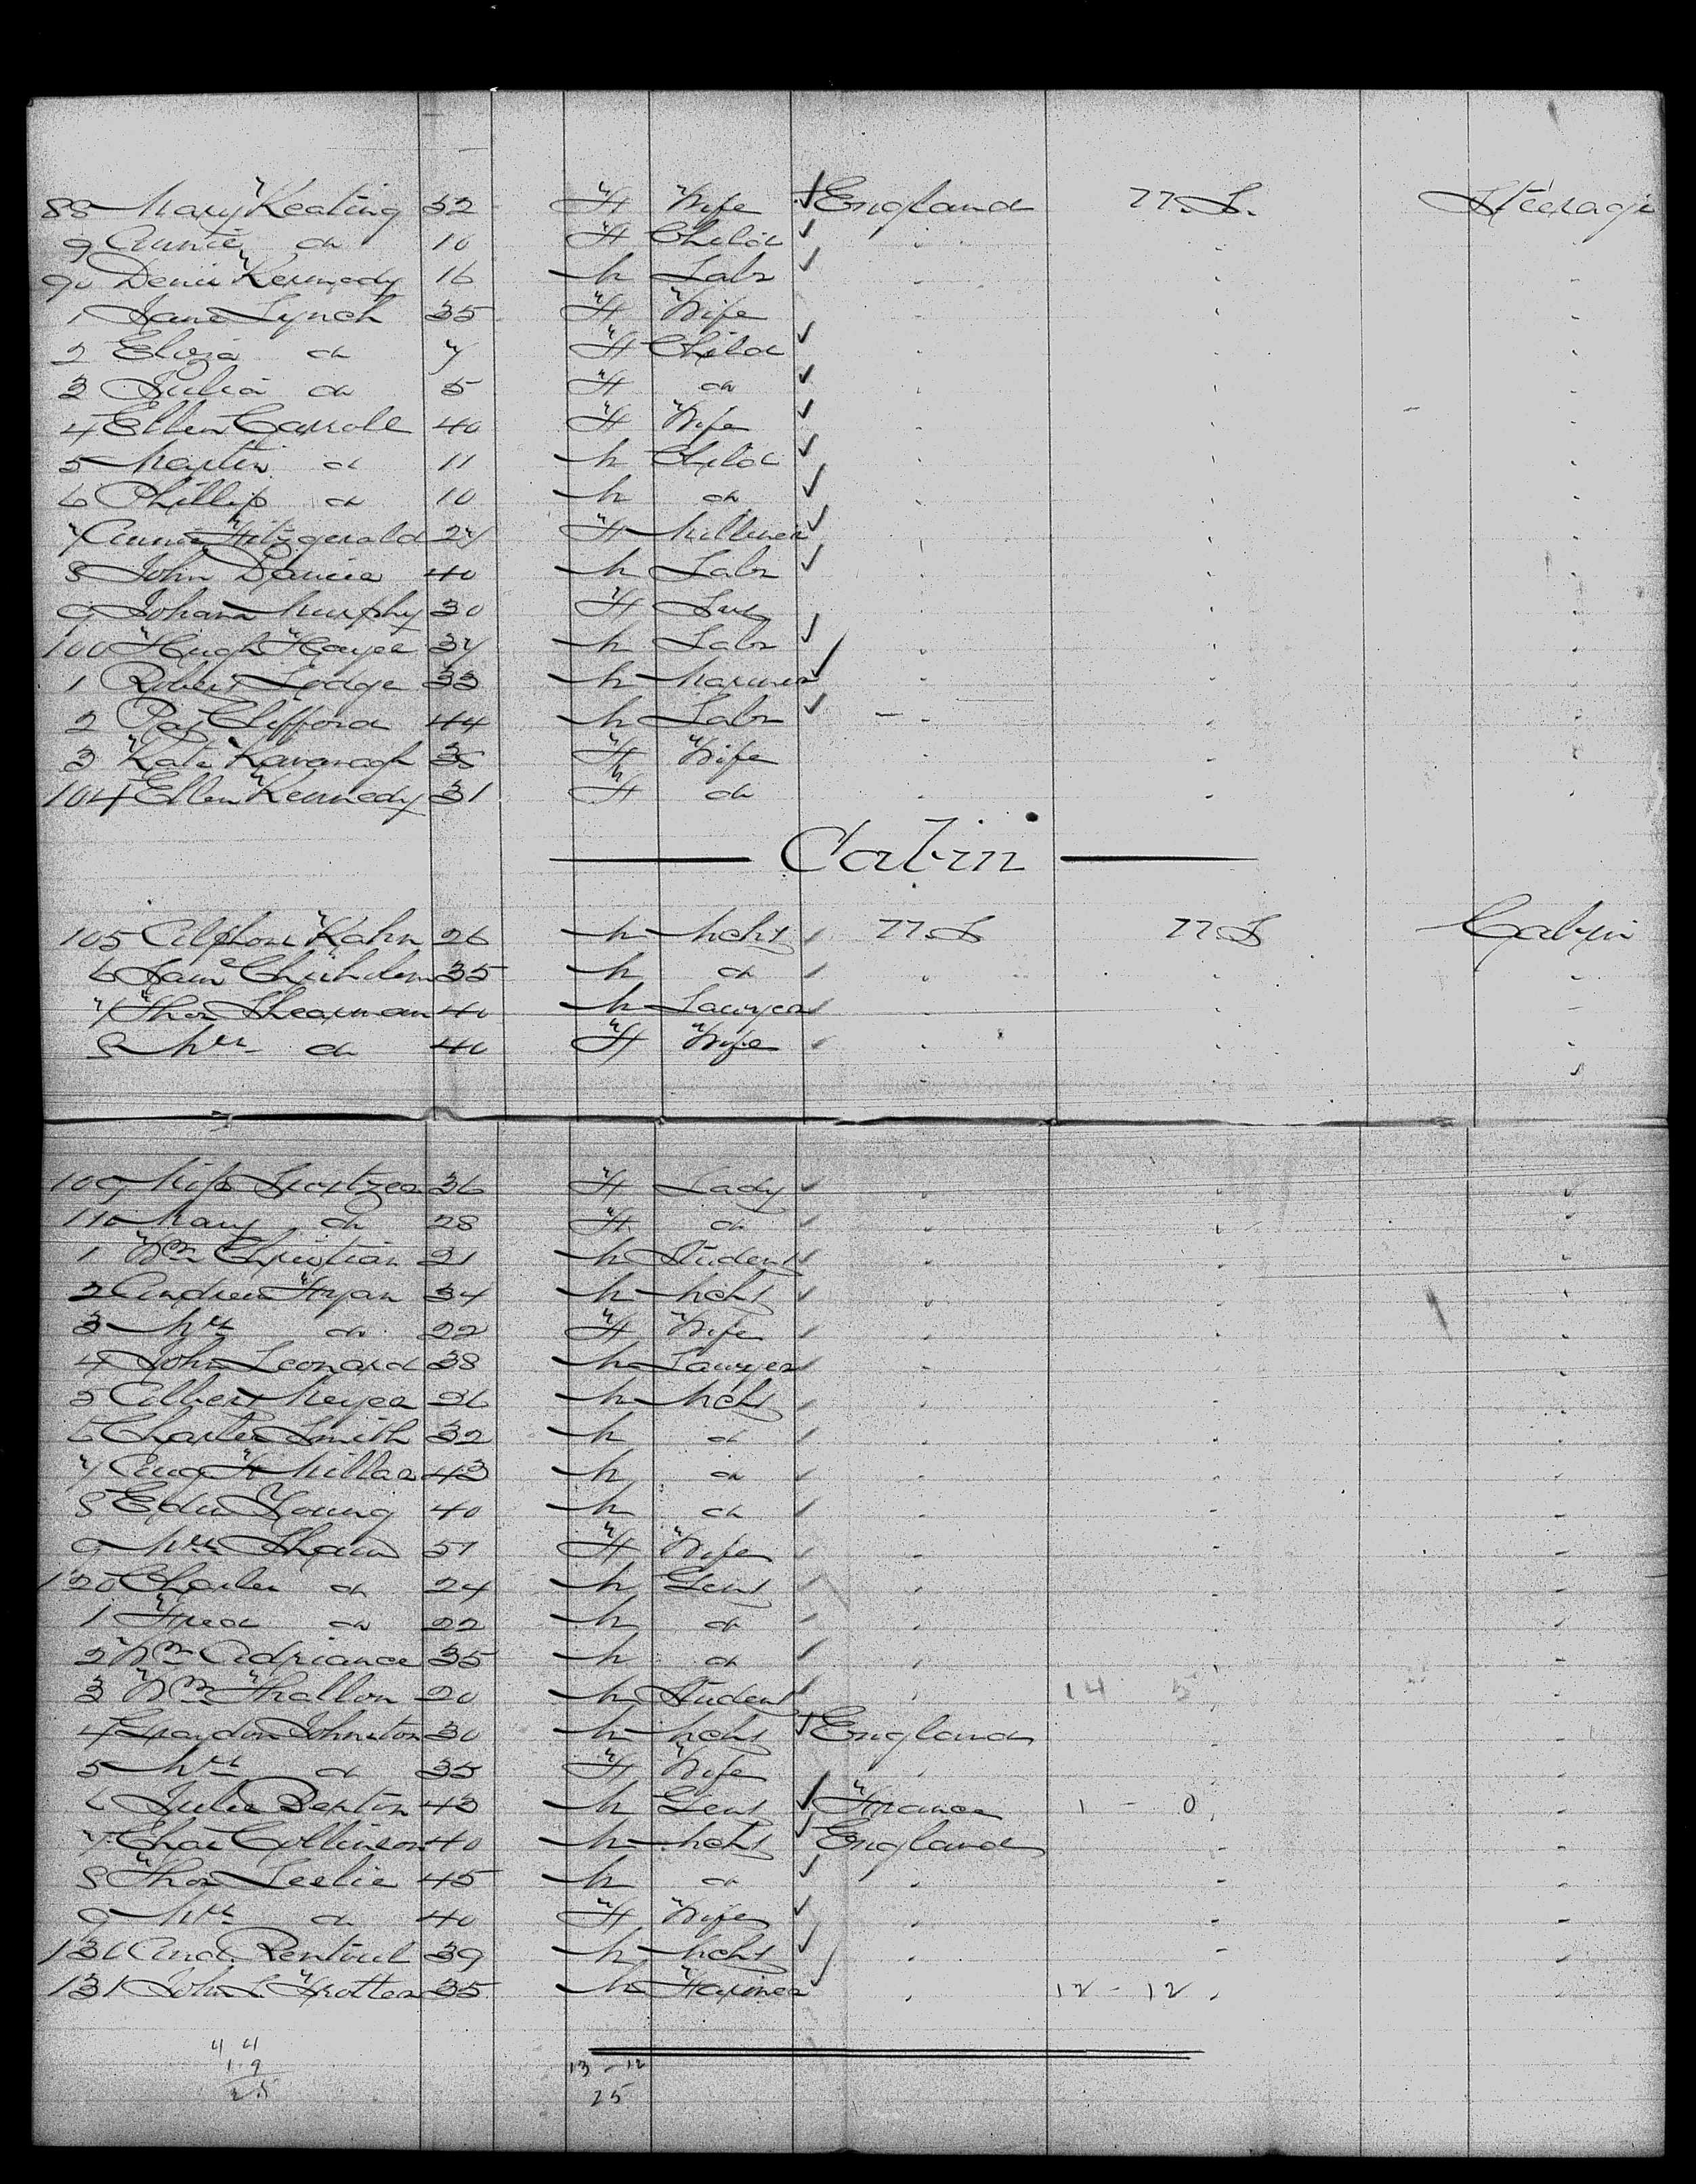 88 Mary Keating 32 F Wife England U.S. Steerage
9 Annie do 10 F Child
90 Denis Kennedy 16 M Labr
1 Jane Lynch 35 F Wife
2 Eliza do 7 F Child
3 Julia do 5 F do
4 Ellen Carroll 40 F Wife
5 Martin do 11 M Child
6 Phillip do 10 M do
7 Annie Fitzgerald 27 F Milliner
8 John Daucia 40 M Labr
9 Johana Murphy 30 F
100 Hugh Hayes 37 M Labr
1 Robert Lodge 33 M Mariner
2 Pat Clifford 44 M Labr
3 Kate Kavanagh 38 F Wife
104 Ellen Kennedy 31 F do
Cabin
105 Alphons Kahn 26 M Mcht U.S U.S Cabin
6 Saml Chisholm 35 M do
7 Thos Shearman 40 M Lawyer
8 Mrs do 40 F Wife
109 Miss 36 F Lady
110 Mary do 28 F do
1 Wm Christian 21 M Student
2 Andrew Fryan 34 M Mcht
3 Mrs do 22 F Wife
4 John Leonard 38 M Lawyer
5 Albert Meyer 26 M Mcht
6 Charles Smith 32 M do
7 Aug F Millar 43 M do
8 Edw Young 40 M do
9 Mrs Shaw 51 F Wife
120 Charles do 24 M Gent
1 Fred do 22 M do
2 Wm Adriance 35 M do
3 Wm Thallon 20 M Student 14 5
4 Graydon Johnston 30 M Mcht England
5 Mrs do 35 F Wife
6 Jules 43 M Gent France 1 - 0
7 Chas Collinson 40 M Mcht England
8 Thos Leslie 45 M do
9 Mrs do 40 F Wife
130 And. Rentoul 39 M Mcht
131 John L Trotter 35 M Farmer 12 - 12
4 4
1 9
25
13 - 12
25